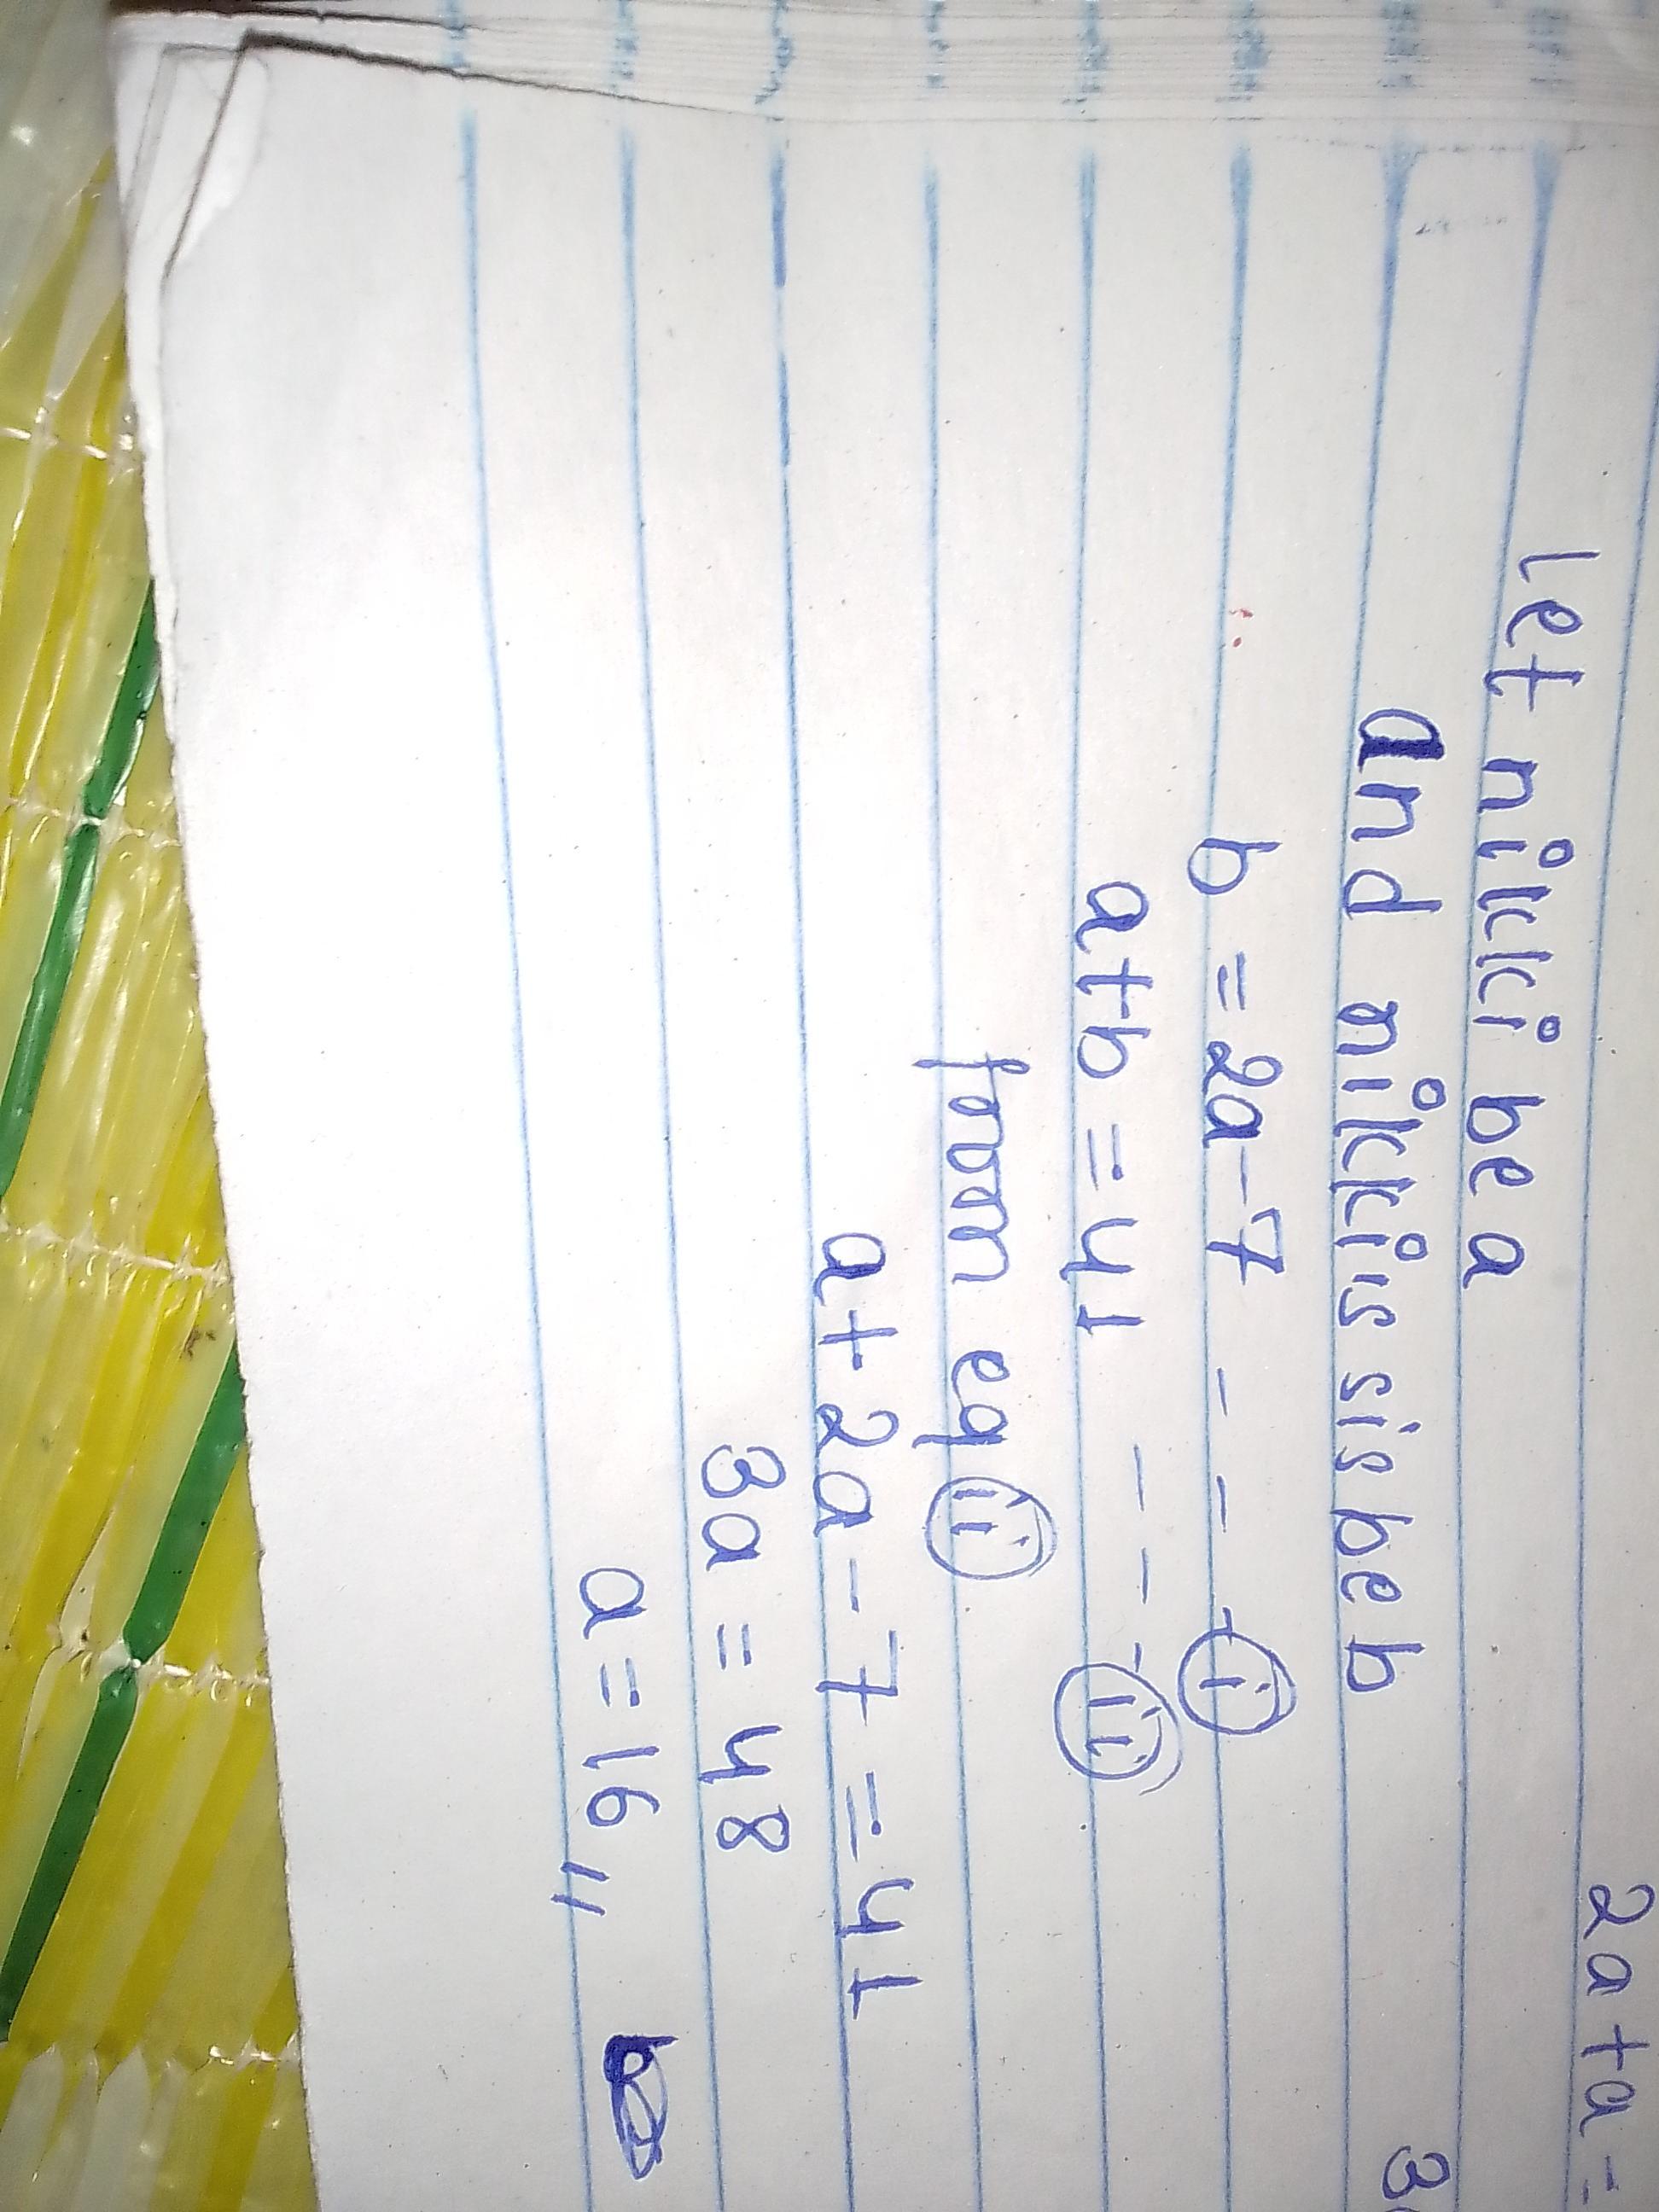 2a + a =
let nikki be a
3
and nikki's sis be b
b = 2a - 7 - - - (i)
a+b = 41 - - - (ii)
from eq (ii)
a + 2a - 7 = 41
3a = 48
a = 16 "